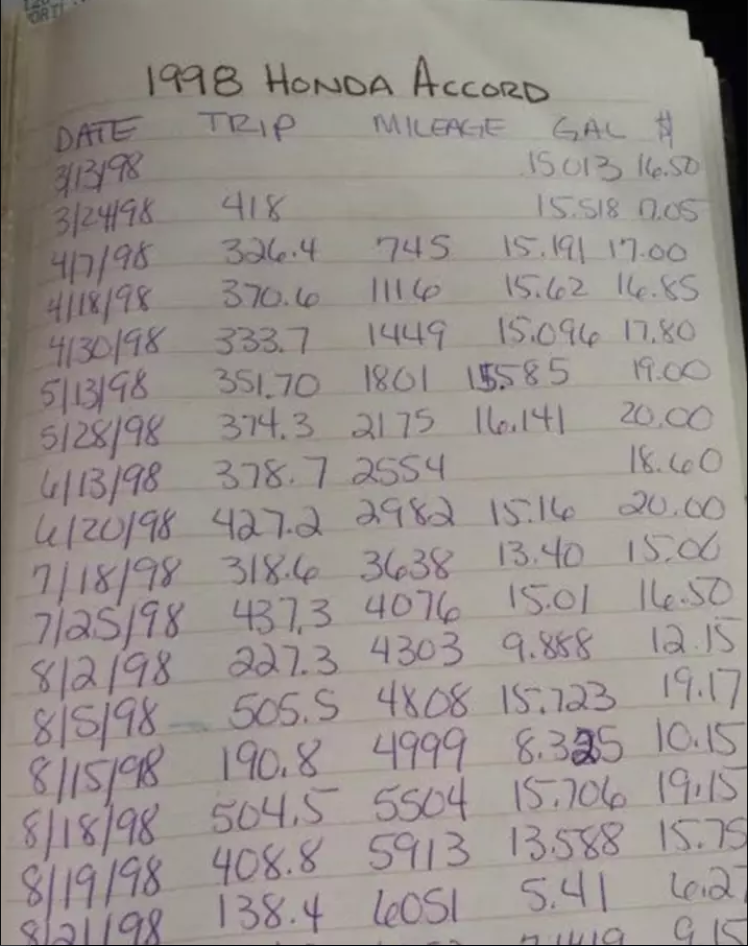 1998 HONDA ACCORD
DATE TRIP MILEAGE GAL $
3/13/98 15013 16.50
3/24/98 418 15.518 17.05
4/7/98 326.4 745 15.191 17.00
4/18/98 370.6 1116 15.62 16.85
4/30/98 333.7 1449 15.096 17.80
5/13/98 351.70 1801 15.585 19.00
5/28/98 374.3 2175 16.141 20.00
6/13/98 378.7 2554 18.60
6/20/98 427.2 2982 15.16 20.00
7/18/98 318.6 3638 13.40 15.00
7/25/98 437.3 4076 15.01 16.50
8/2/98 227.3 4303 9.888 12.15
8/5/98 505.5 4808 15.723 19.17
8/15/98 190.8 4999 8.325 10.15
8/18/98 504.5 5504 15.706 19.15
8/19/98 408.8 5913 13.588 15.75
8/21/98 138.4 6051 5.41 6.27
9.15